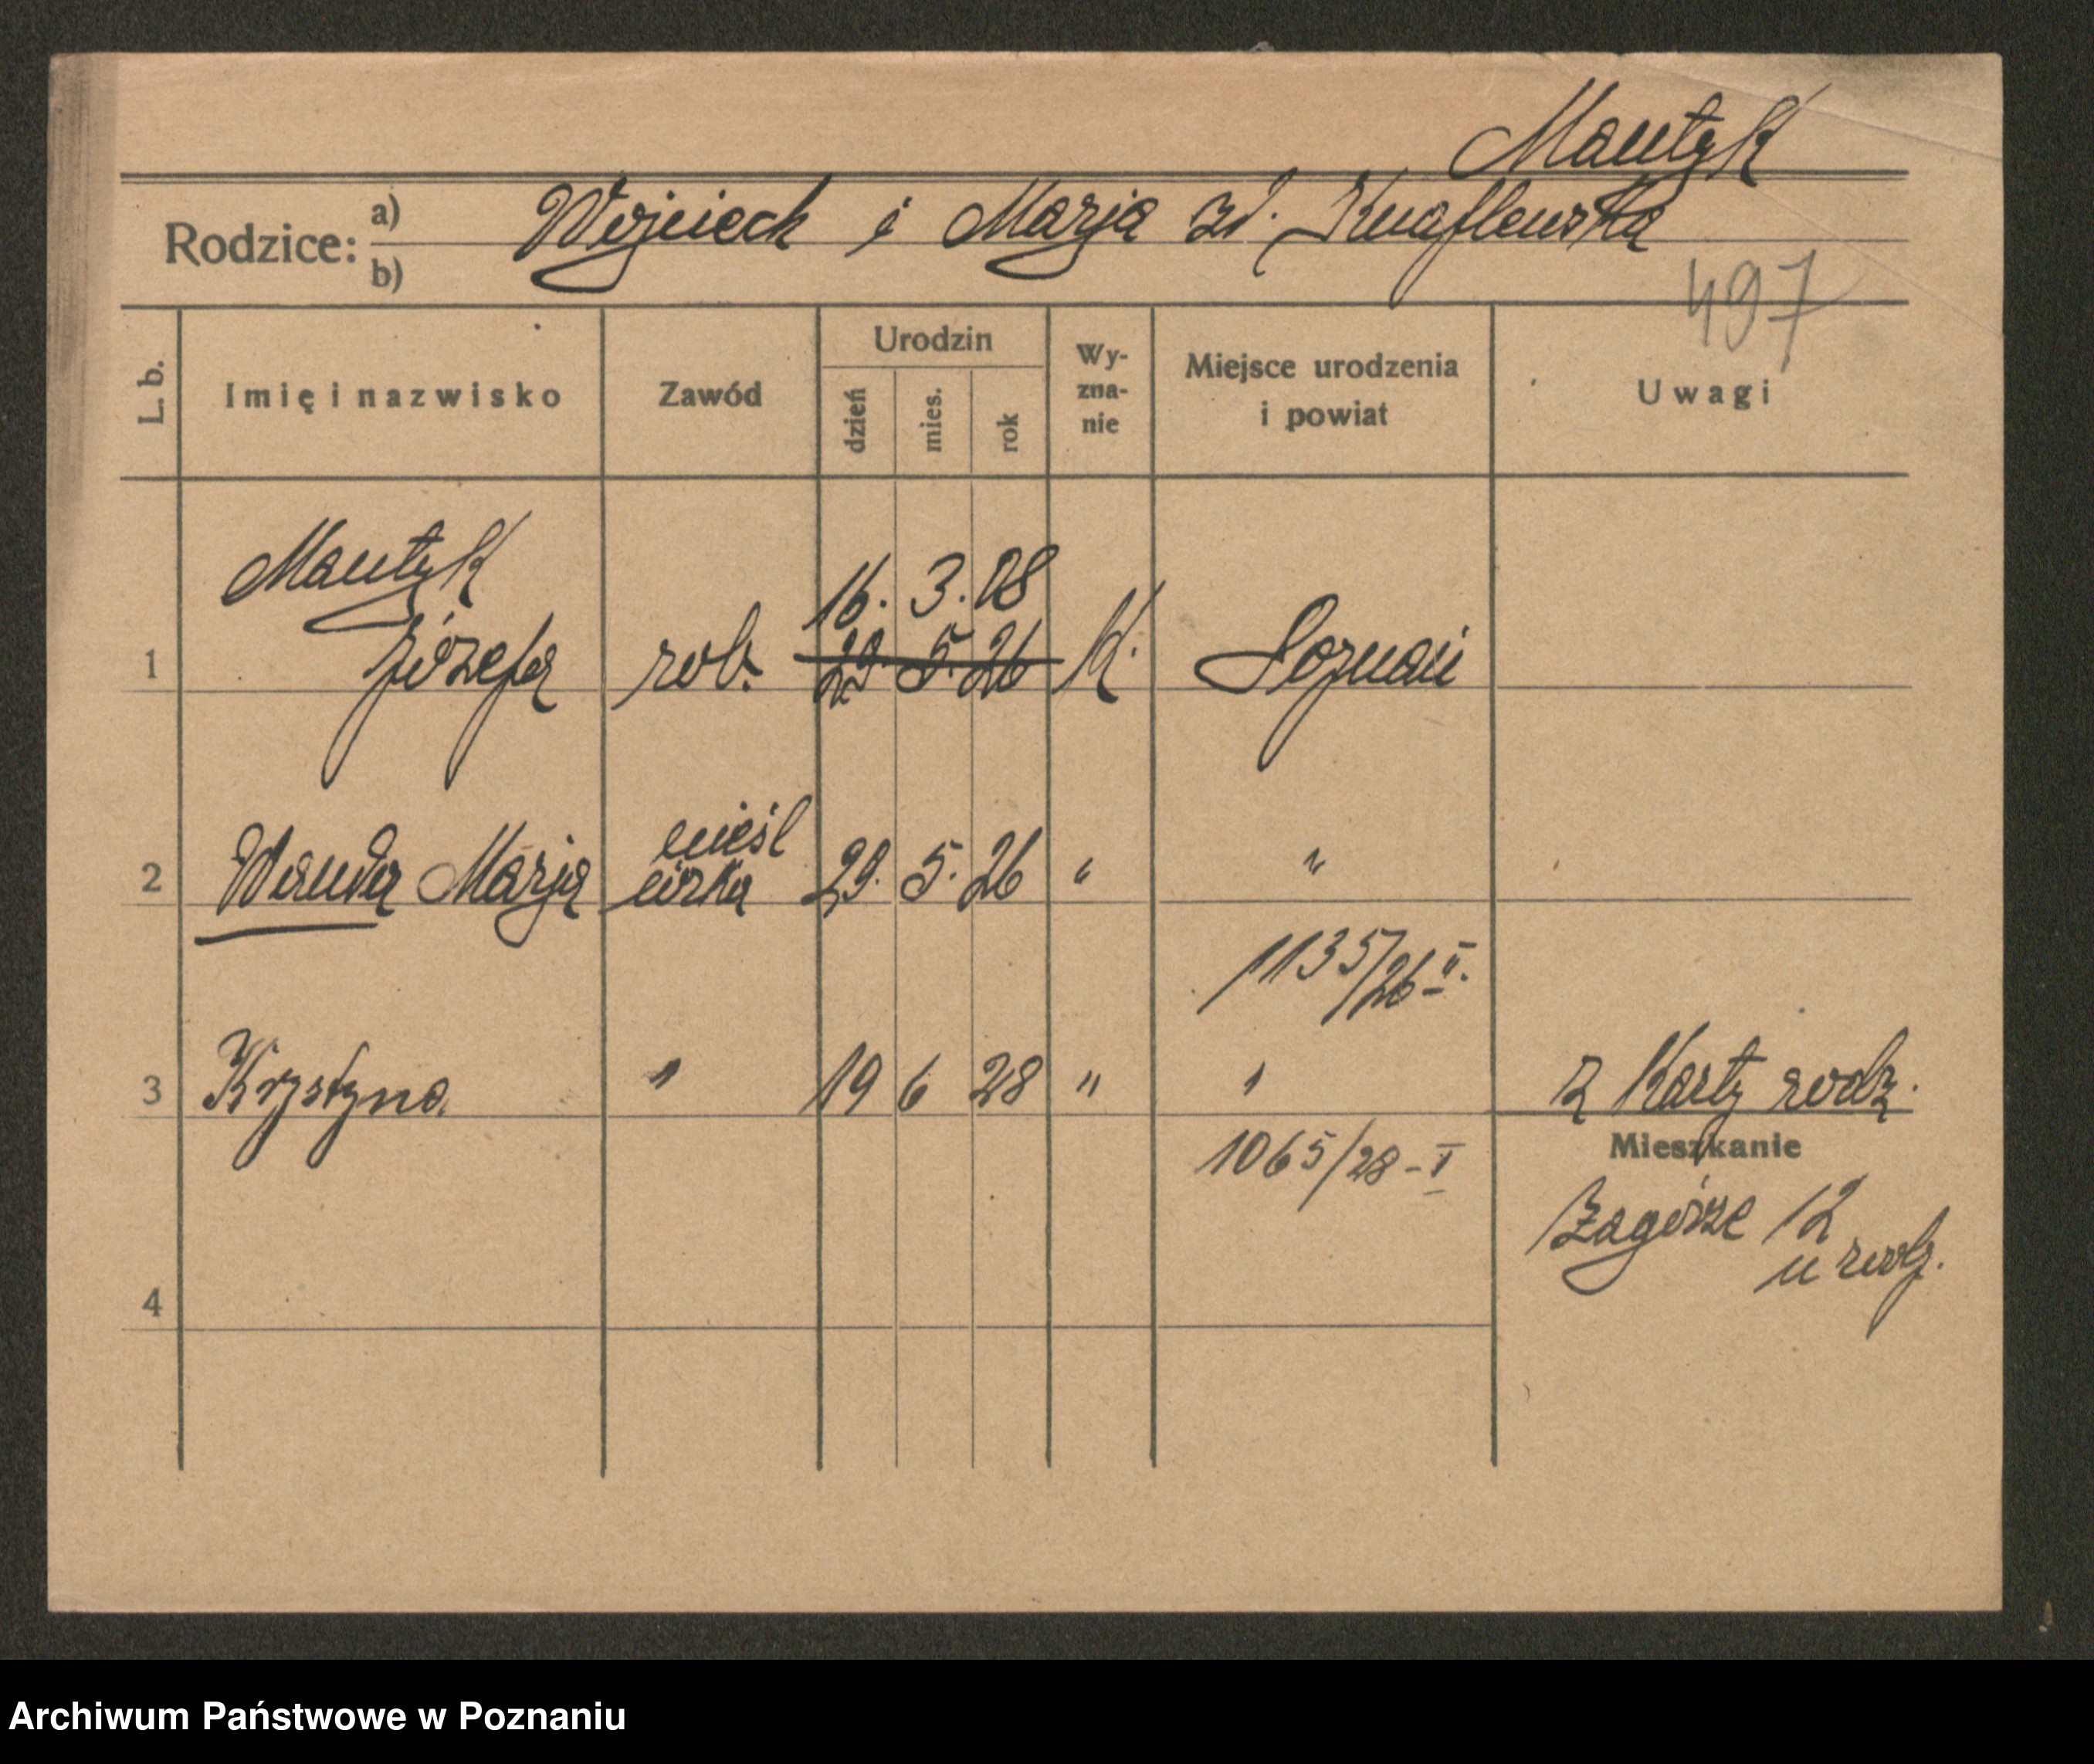 Mantyk
Rodzice: a) Wojciech i Marja zd. Knaflewska
b)
497
L. b. Imię i nazwisko Zawód Urodzin dzień mies. rok Wy-zna-nie Miejsce urodzenia i powiat Uwagi
Mantyk
16. 3. 08
1 Józefa rob. 29. 5. 26 K. Poznań
nieśl
2 Wanda Marja córka 29. 5. 26 " "
1135/26 II.
3 Krystyna " 19 6 28 " " z Karty rodz.
1065/28 - I
Mieszkanie
Zagórze 12
u rodz.
4
Archiwum Państwowe w Poznaniu